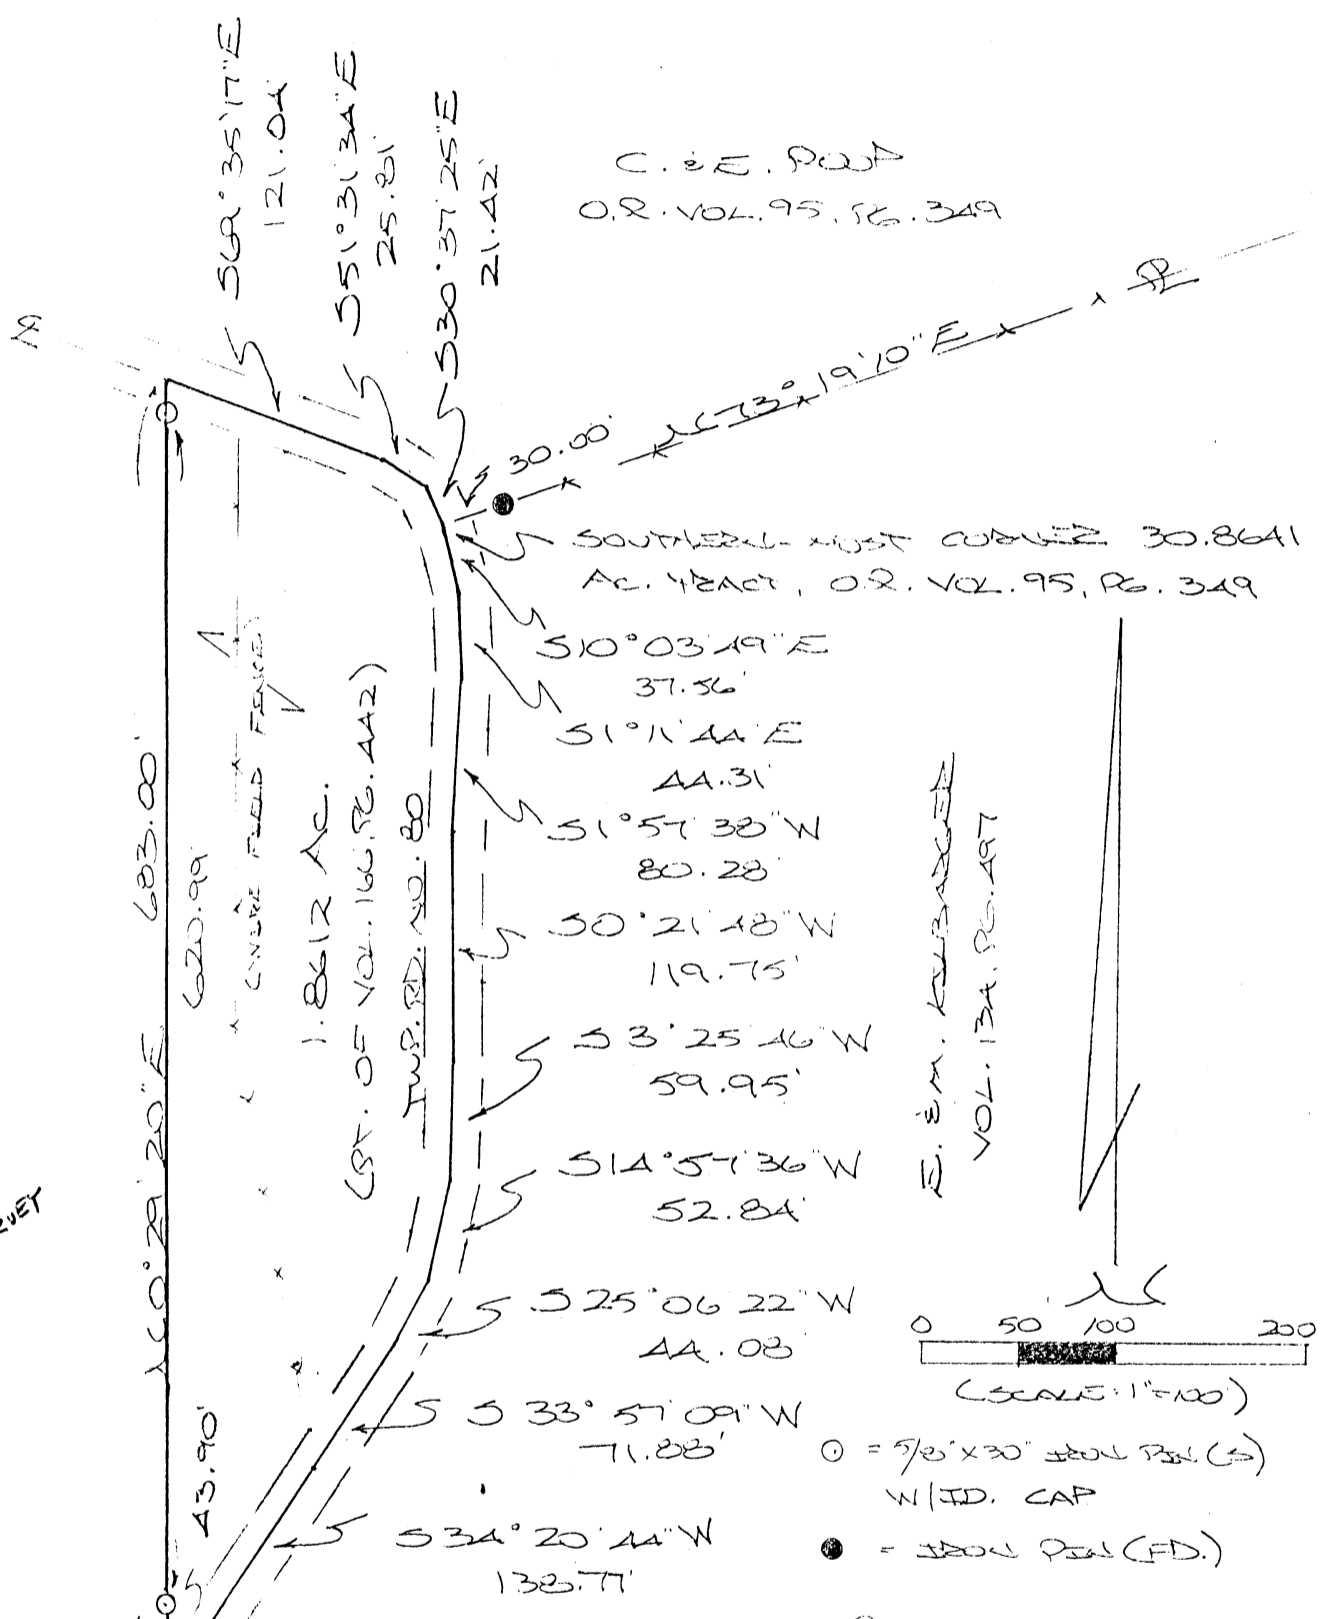 S69°35'17"E
121.04'
S51°31'34"E
25.81'
S30°37'25"E
21.42'
C. & E.
O.R. VOL. 95, PG. 349
PL
N73°19'10"E
30.00'
SOUTHERN-MOST CORNER 30.8641
AC. TRACT, O.R. VOL. 95, PG. 349
S10°03'49"E
37.56'
S1°11'44"E
44.31'
S1°57'38"W
80.28'
S0°21'48"W
119.75'
S3°25'46"W
59.95'
S14°57'36"W
52.84'
S25°06'22"W
44.08'
S33°57'09"W
71.88'
S34°20'44"W
138.77'
N0°29'20"E 683.00'
620.99'
43.90'
(WIRE FIELD FENCE)
1.8612 AC.
(PT. OF VOL. 166, PG. 442)
TWP. RD. NO. 80
E. & M.
VOL. 134, PG. 497
N
0 50 100 200
(SCALE: 1"=100')
= 5/8" X 30" IRON PIN (S)
W/ID. CAP
= IRON PIN (FD.)